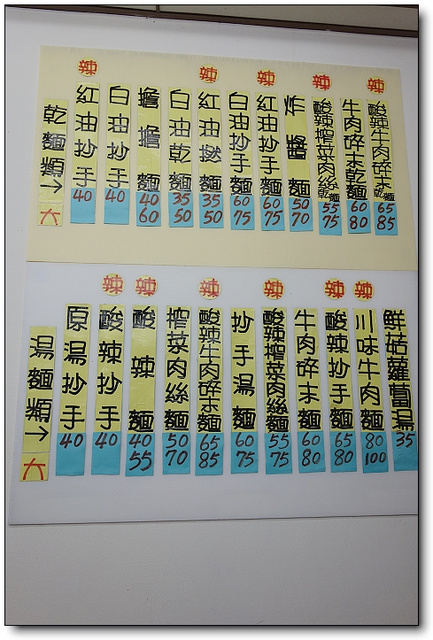 乾麵類→
辣
紅油抄手
40
白油抄手
40
擔擔麵
40
60
白油乾麵
35
50
辣
紅油 麵
35
50
白油抄手麵
60
75
辣
紅油抄手麵
60
75
炸醬麵
50
70
辣
酸辣搾菜肉絲乾麵
55
75
牛肉碎末乾麵
60
80
辣
酸辣牛肉碎末乾麵
65
85
湯麵類→
原湯抄手
40
辣
酸辣抄手
40
辣
酸辣麵
40
55
搾菜肉絲麵
50
70
辣
酸辣牛肉碎末麵
65
85
抄手湯麵
60
75
辣
酸辣搾菜肉絲麵
55
75
牛肉碎末麵
60
80
辣
酸辣抄手麵
65
80
辣
川味牛肉麵
80
100
鮮菇蘿蔔湯
35